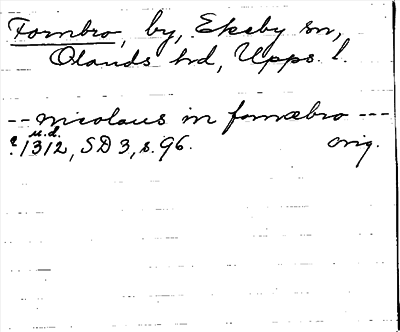 Fornbro, by, Ekeby sn,
Olands hd, Upps. l.
-- nicolaus in fornæbro ---
u.d.
? 1312, SD 3, s. 96. orig.